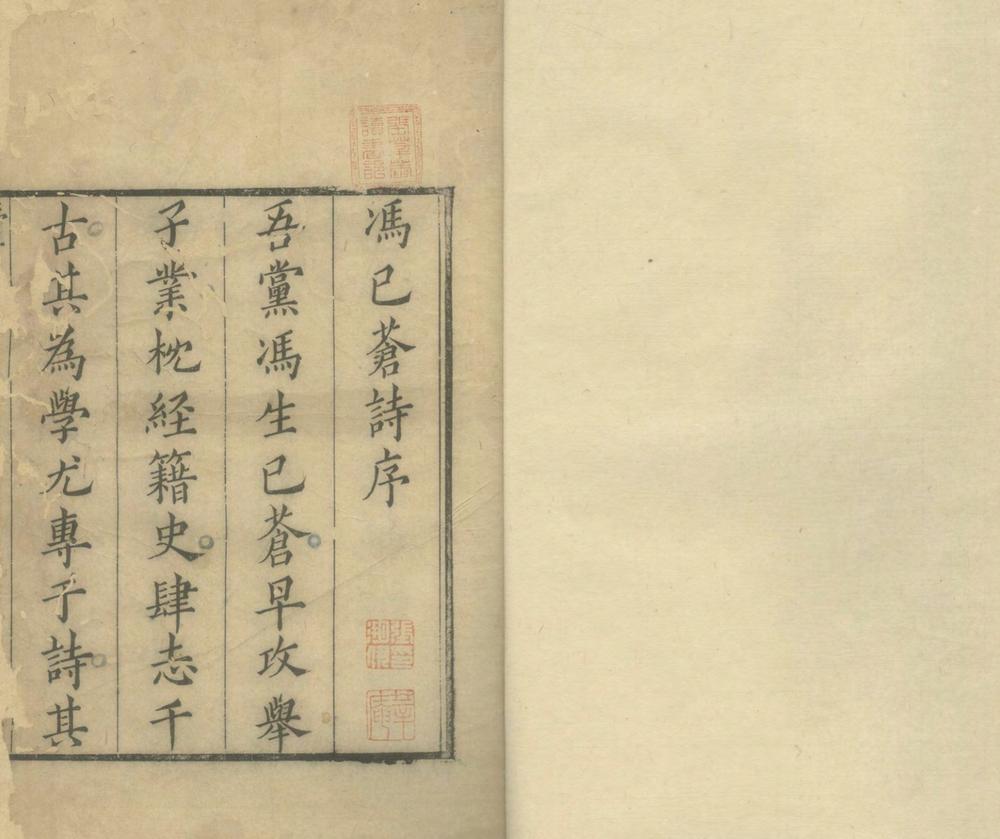 馮已蒼詩序
吾黨馮生已蒼早攻舉
子業枕経籍史肆志千
古其為學尤專于詩其